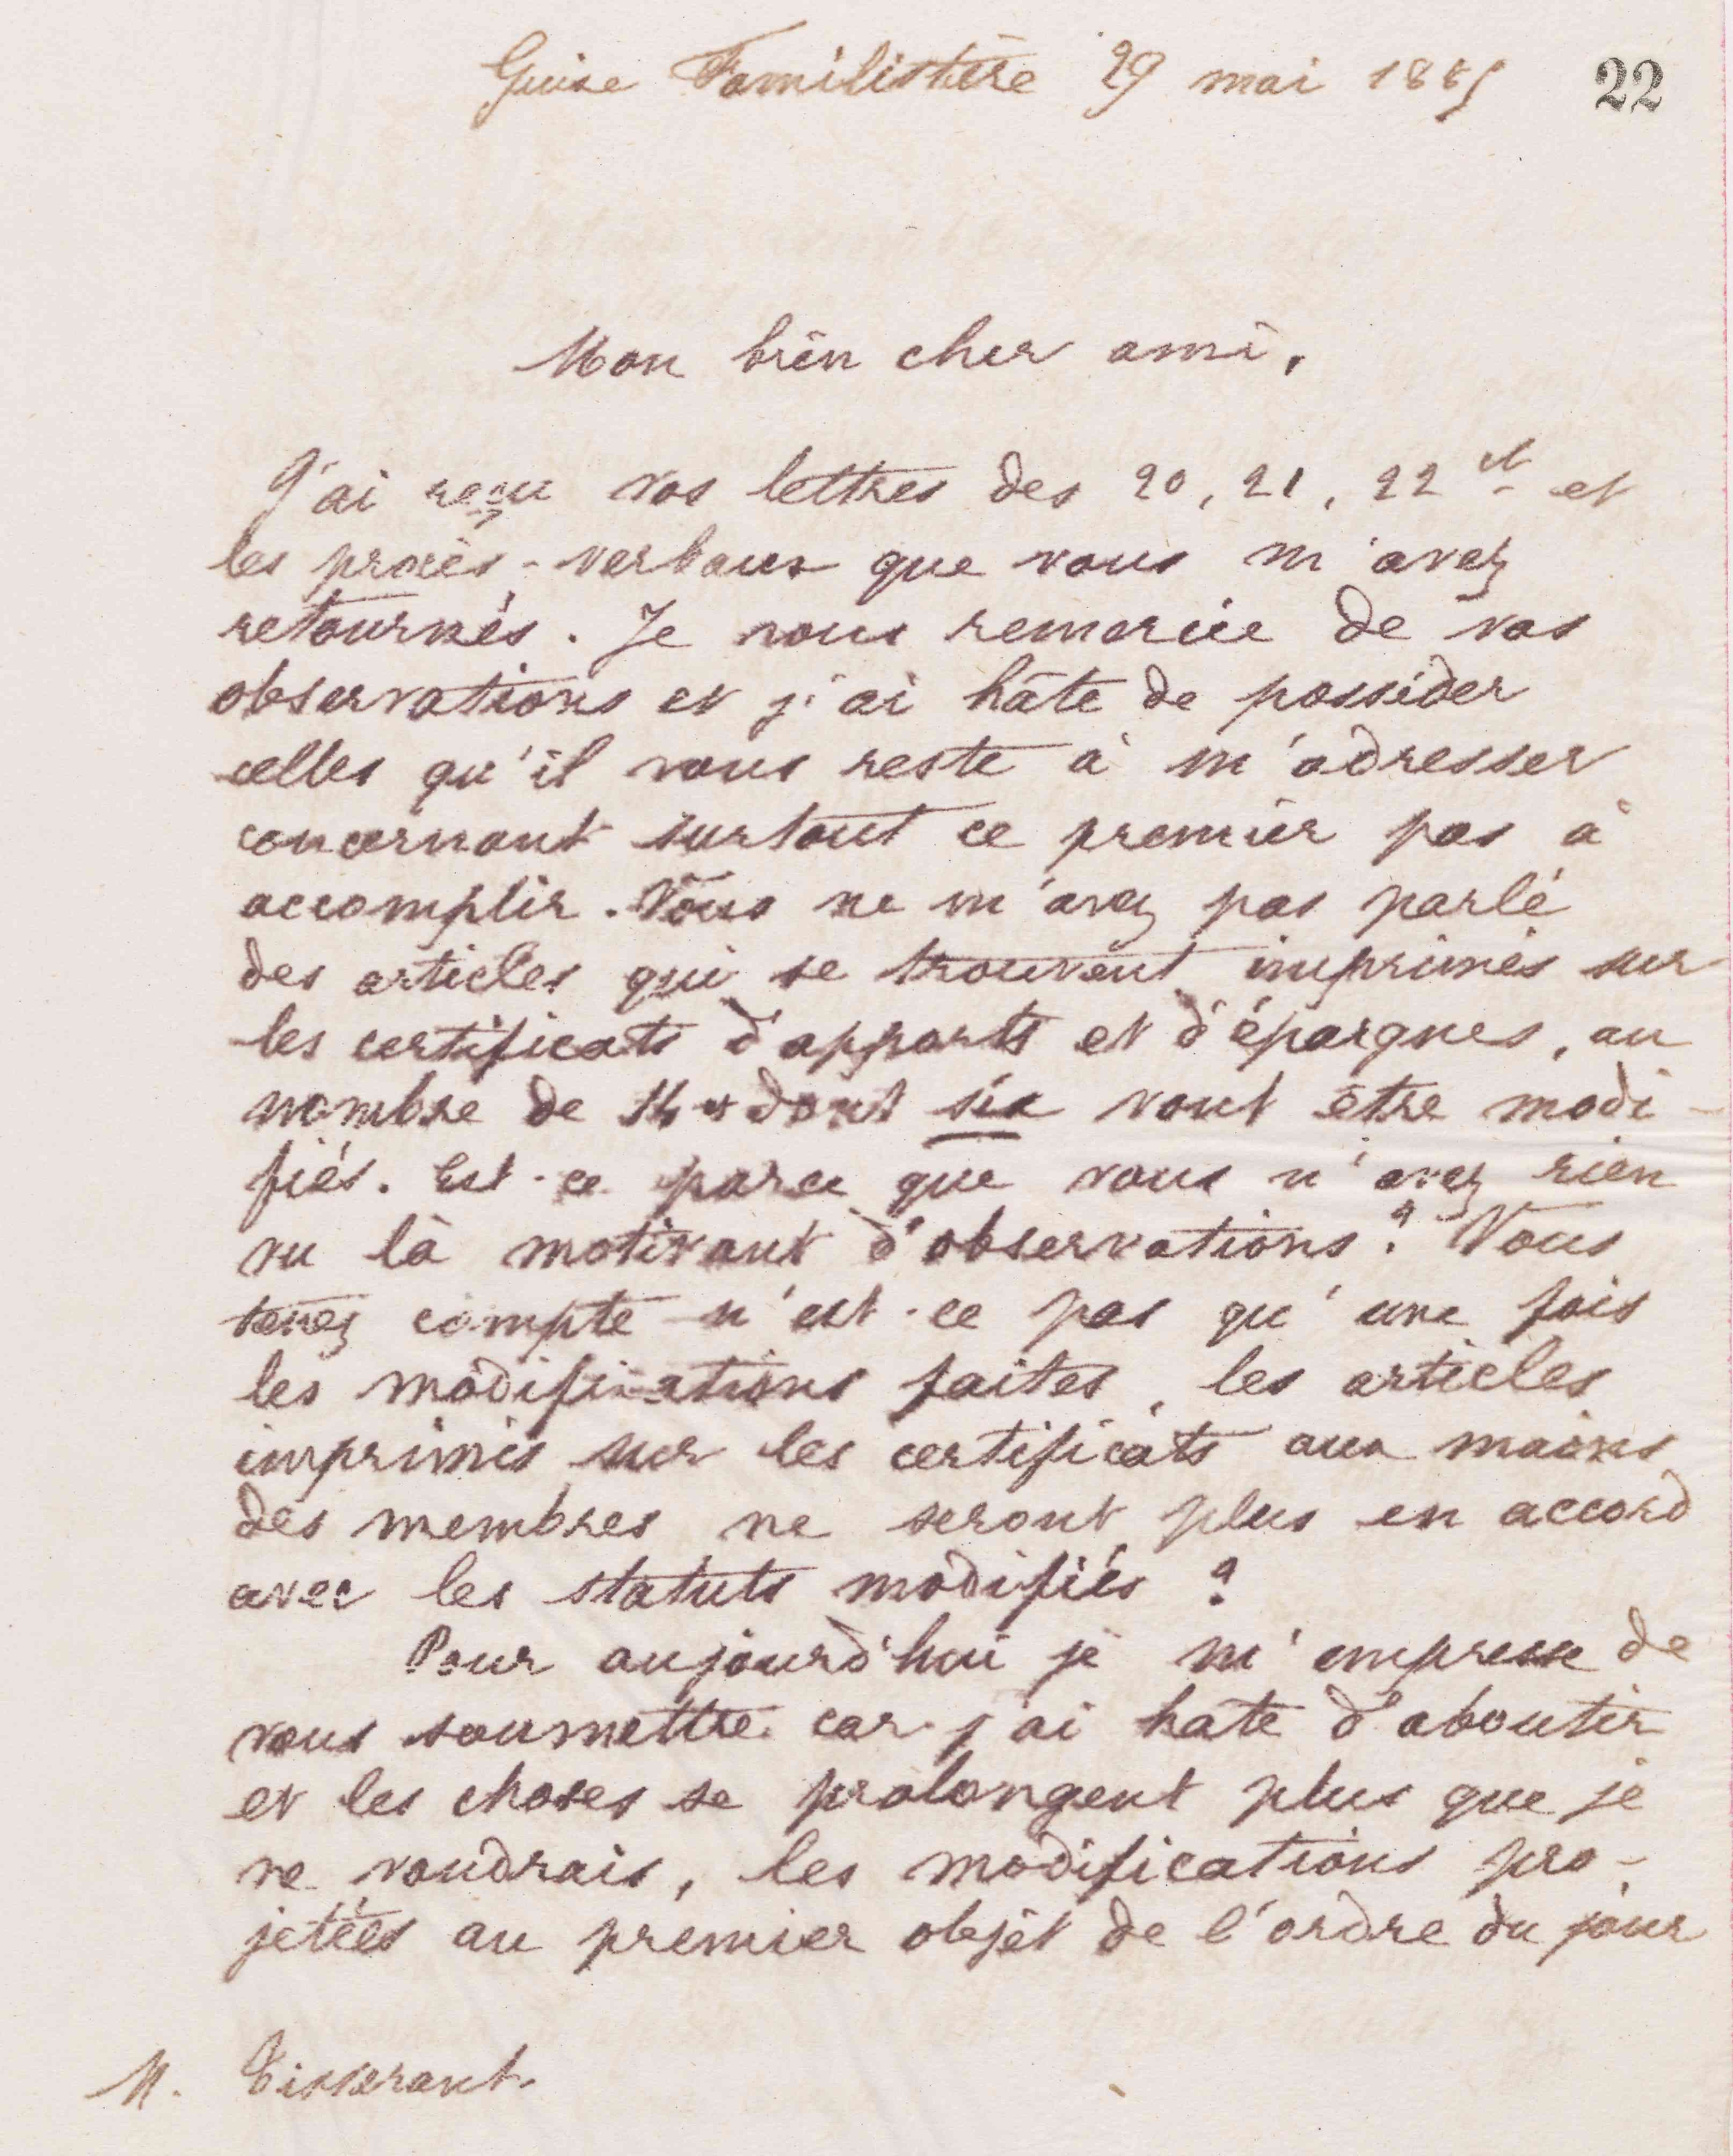 Guise Familistère 29 mai 1885 22
Mon bien cher ami,
J'ai reçu vos lettres des 20, 21, 22 ct et
les procès-verbaux que vous m'avez
retournés. Je vous remercie de vos
observations et j'ai hâte de posséder
celles qu'il vous reste à m'adresser
concernant surtout ce premier pas à
accomplir. Vous ne m'avez pas parlé
des articles qui se trouvent imprimés sur
les certificats d'apports et d'épargnes, au
nombre de dont six vont être modi-
fiés. Est-ce parce que vous n'avez rien
vu là motivant d'observations ? Vous
tenez compte n'est-ce pas qu'une fois
les modifications faites, les articles
imprimés sur les certificats aux mains
des membres ne seront plus en accord
avec les statuts modifiés ?
Pour aujourd'hui je m'empresse de
vous soumettre car j'ai hâte d'aboutir
et les choses se prolongent plus que je
ne voudrais, les modifications pro-
jetées au premier objet de l'ordre du jour
M. Tisserant.